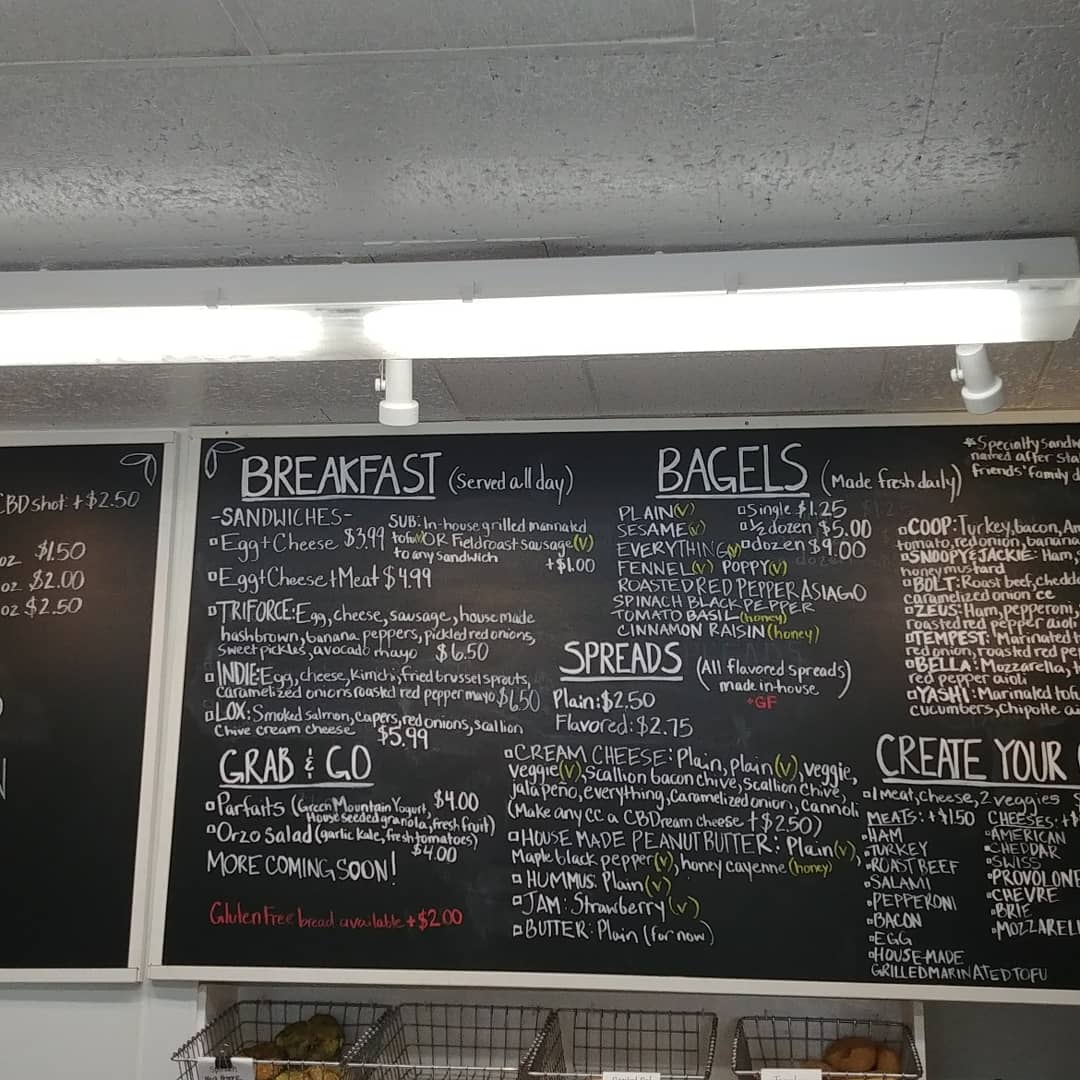 CBD shot: +$2.50
oz $1.50
oz $2.00
oz $2.50
BREAKFAST (Served all day)
-SANDWICHES-
Egg + Cheese $3.99
SUB: In-house grilled marinated
tofu(V) OR Fieldroast Sausage(V)
to any sandwich
+$1.00
Egg + Cheese + Meat $4.99
TRIFORCE: Egg, cheese, sausage, house made
hashbrown, banana peppers, pickled red onions,
sweet pickles, avocado mayo $6.50
INDIE: Egg, cheese, Kimchi, fried brussel sprouts,
caramelized onions roasted red pepper mayo $6.50
LOX: Smoked salmon, capers, red onions, scallion
chive cream cheese $5.99
GRAB & GO
Parfaits (Green Mountain Yogurt, $4.00
House seeded granola, fresh fruit)
Orzo Salad (garlic kale, fresh tomatoes)
$4.00
MORE COMING SOON!
Gluten Free bread available +$2.00
BAGELS (Made fresh daily)
PLAIN(V)
SESAME(V)
EVERYTHING(V)
FENNEL(V) POPPY(V)
ROASTED RED PEPPER ASIAGO
SPINACH BLACK PEPPER
TOMATO BASIL (honey)
CINNAMON RAISIN (honey)
Single $1.25
½ dozen $5.00
dozen $9.00
SPREADS (All flavored spreads)
made in-house
GF
Plain: $2.50
Flavored: $2.75
CREAM CHEESE: Plain, plain(V), veggie,
veggie(V), scallion bacon chive, scallion chive,
jalapeño, everything, caramelized onion, cannoli
(Make any cc a CBDream cheese +$2.50)
HOUSE MADE PEANUT BUTTER: Plain(V),
Maple black pepper(V), honey cayenne (honey)
HUMMUS: Plain(V)
JAM: Strawberry(V)
BUTTER: Plain (for now)
*Specialty sandw
named after sta
friends' family d
COOP: Turkey, bacon, Am
tomato, red onion, banana
SNOOPY & JACKIE: Ham,
honey mustard
BOLT: Roast beef, chedd
caramelized onion cc
ZEUS: Ham, pepperoni,
roasted red pepper aioli
TEMPEST: Marinated t
red onion, roasted red pe
BELLA: Mozzarella, t
red pepper aioli
YASHI: Marinated tofu
cucumbers, Chipotle ai
CREATE YOUR
1 meat, cheese, 2 veggies $
MEATS: +$1.50
HAM
TURKEY
ROAST BEEF
SALAMI
PEPPERONI
BACON
EGG
HOUSEMADE
GRILLED MARINATED TOFU
CHEESES: +$
AMERICAN
CHEDDAR
SWISS
PROVOLONE
CHEVRE
BRIE
MOZZAREL